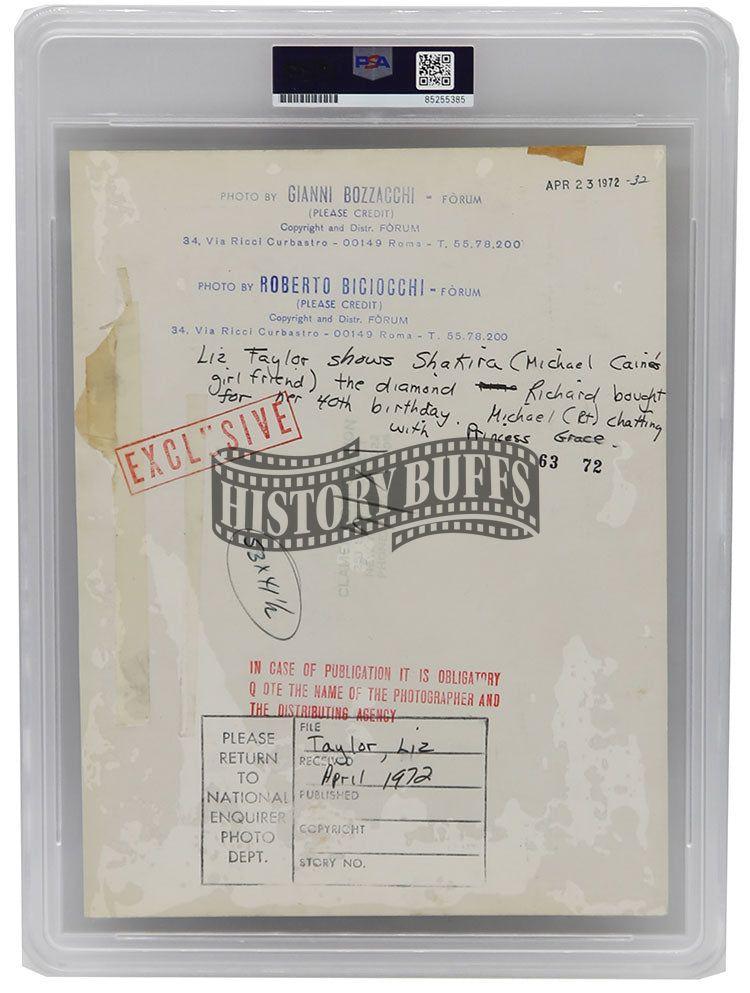 PSA
85255385
APR 23 1972 -32
PHOTO BY GIANNI BOZZACCHI - FÒRUM
(PLEASE CREDIT)
Copyright and Distr. FÒRUM
34, Via Ricci Curbastro - 00149 Roma - T. 55.78.200
PHOTO BY ROBERTO BICIOCCHI - FÒRUM
(PLEASE CREDIT)
Copyright and Distr. FÒRUM
34, Via Ricci Curbastro - 00149 Roma - T. 55.78.200
Liz Taylor shows Shakira (Michael Caine's
girl friend) the diamond Richard bought
for her 40th birthday. Michael (Rt) chatting
with Princess Grace.
EXCLUSIVE
63 72
HISTORY BUFFS
53 x 41½
IN CASE OF PUBLICATION IT IS OBLIGATORY
Q OTE THE NAME OF THE PHOTOGRAPHER AND
THE DISTRIBUTING AGENCY
PLEASE
RETURN
TO
NATIONAL
ENQUIRER
PHOTO
DEPT.
FILE
Taylor, Liz
RECEIVED
April 1972
PUBLISHED
COPYRIGHT
STORY NO.